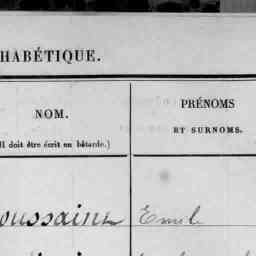 HABÉTIQUE.
NOM.
PRÉNOMS
ET SURNOMS.
Il doit être écrit en bâtarde.)
oussaint Emile